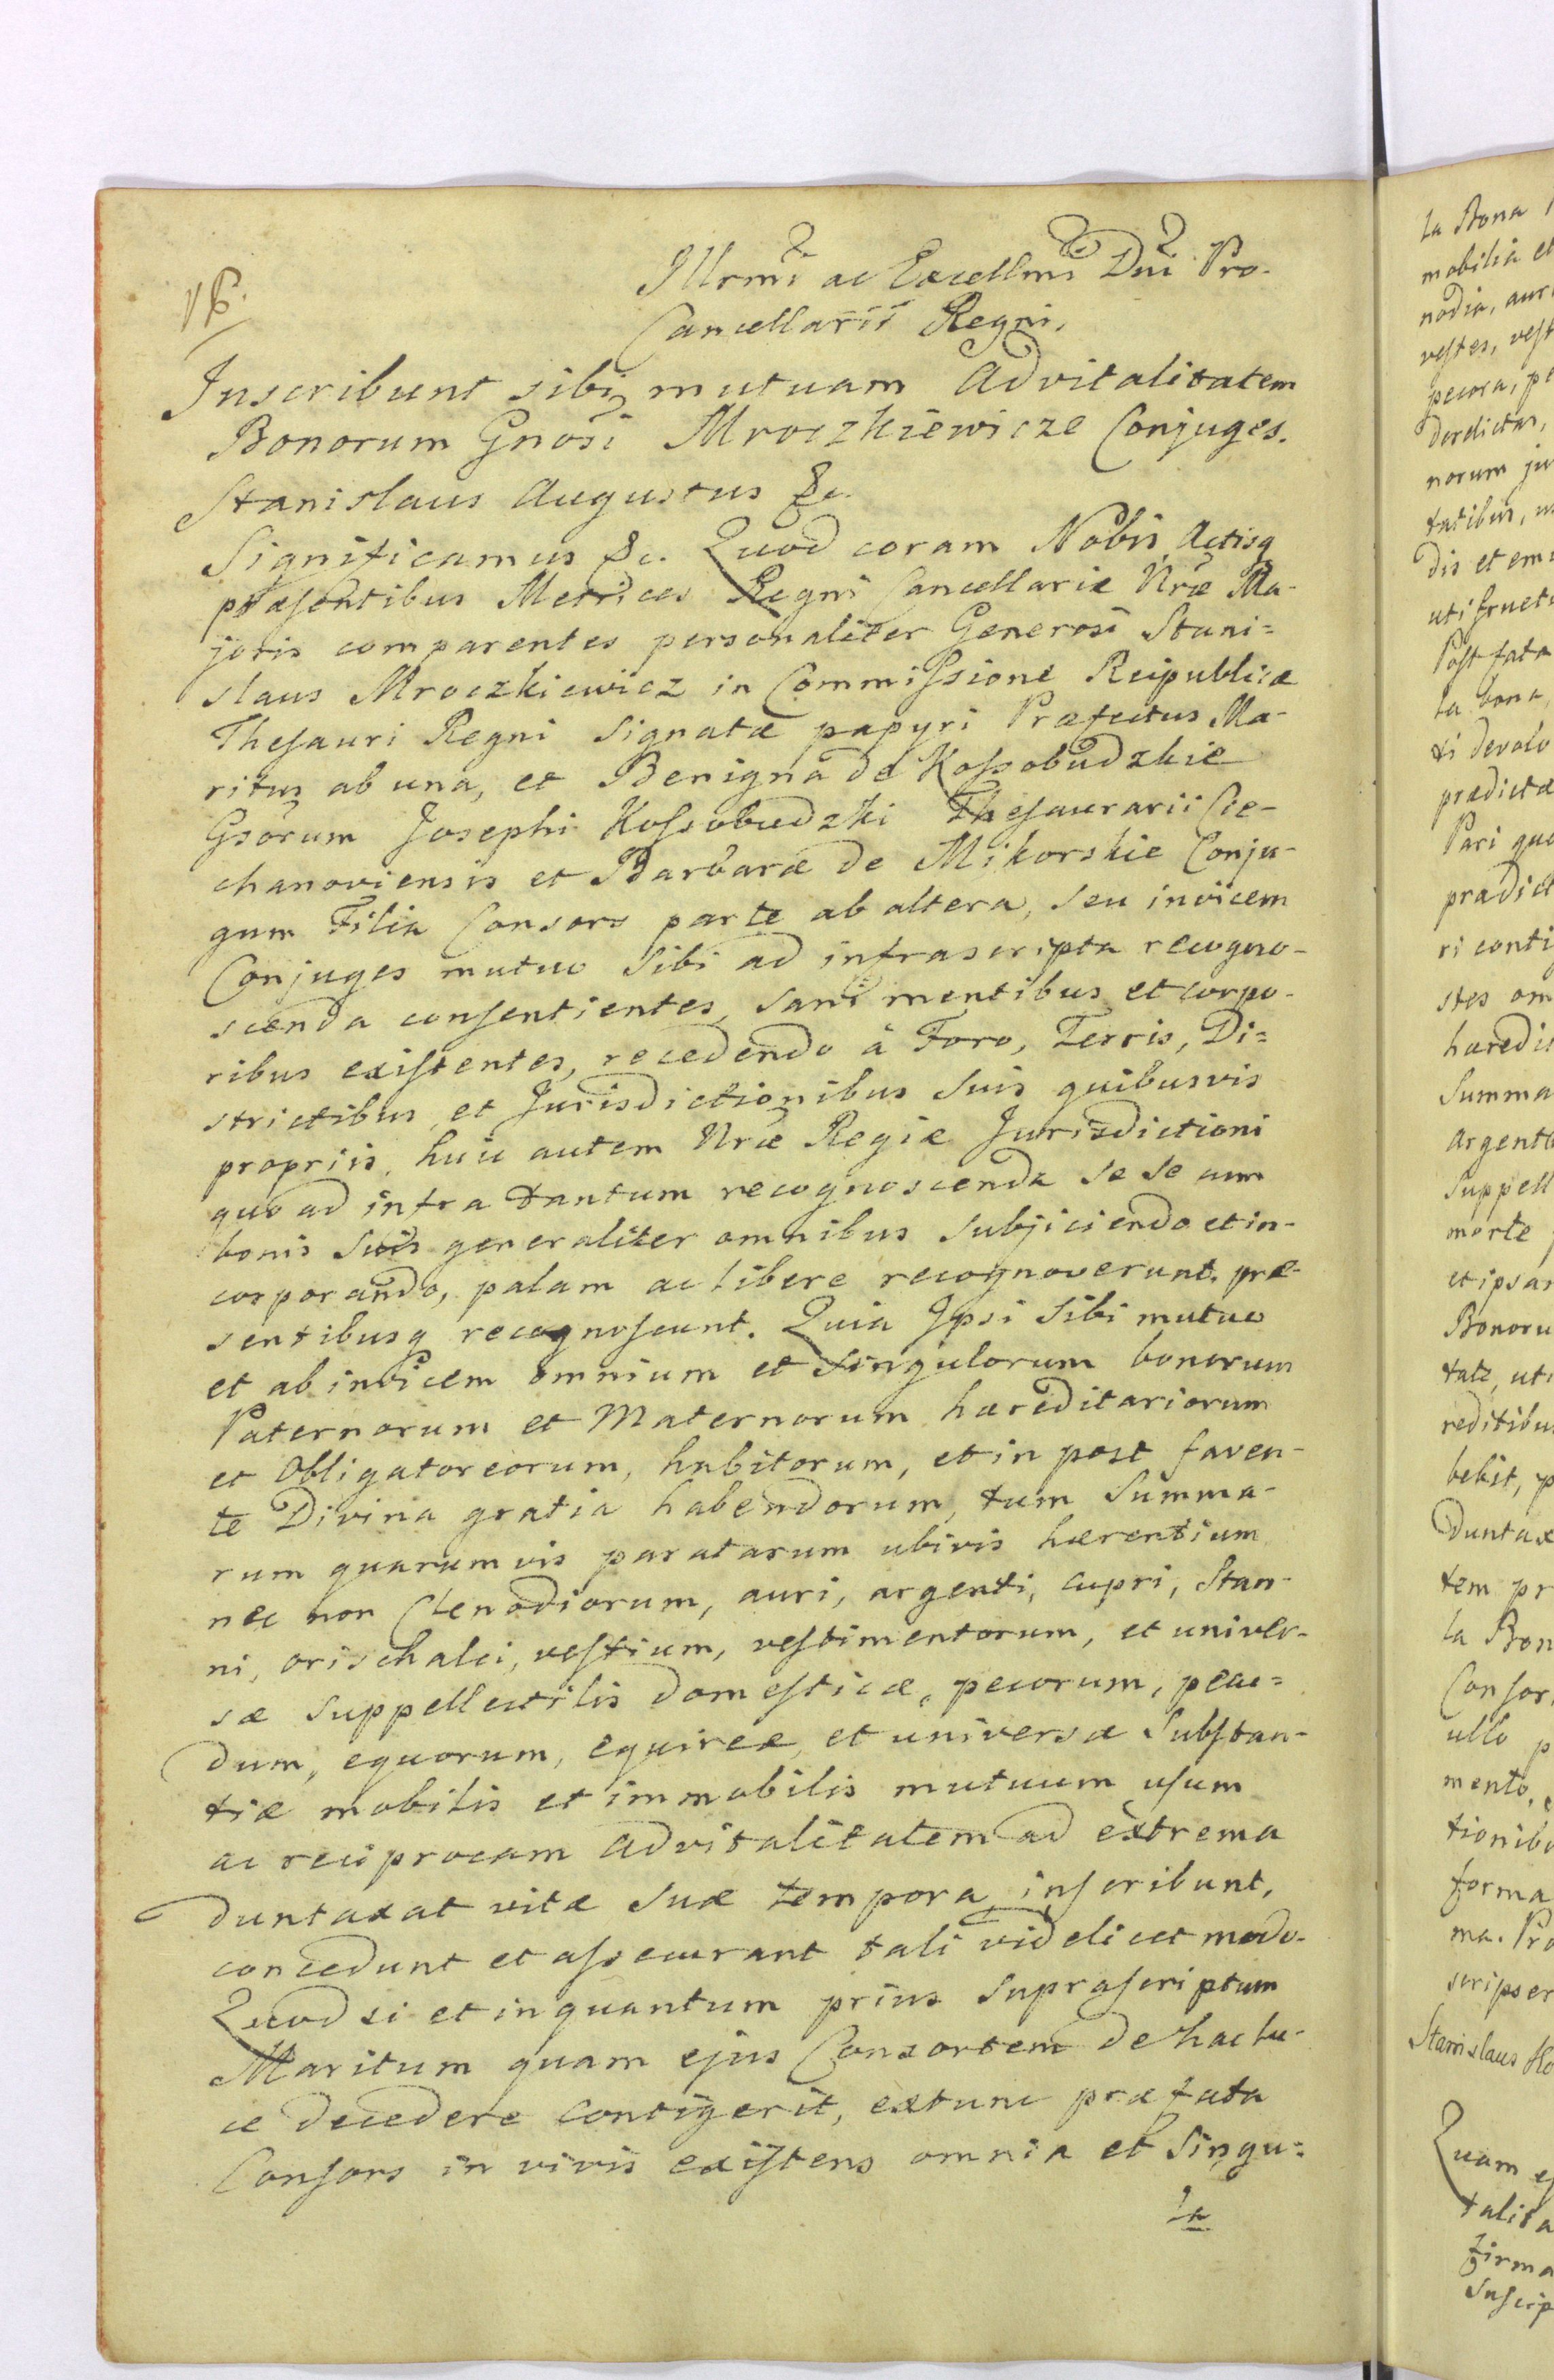 Illrmi ac Excellmi Dni Pro-
Cancellarii Regni.
Inscribunt sibi mutuam Advitalitatem
Bonorum Gnosi Mroczkiewicze Conjuges.
Stanislaus Augustus &c.
Significamus &c. Quod coram Nobis Actisq
præsentibus Metrices Regni Cancellariæ Nræ Ma-
joris comparentes personaliter Generosi Stani=
slaus Mroczkiewicz in Commissione Reipublicæ
Thesauri Regni Signatæ papyri Præfectus Ma-
ritus ab una, et Benigna de Kossobudzkie
Gsorum Josephi Kossobudzki Thesaurarii Cie-
chanoviensis et Barbaræ de Mikorskie Conju-
gum Filia Consors parte ab altera, seu invicem
Conjuges mutuo Sibi ad infrascripta recogno-
scenda consentientes, sani mentibus et corpo-
ribus existentes, recedendo à Foro, Terris, Di=
strictibus, et Jurisdictionibus Suis quibusvis
propriis, huic autem Nræ Regiæ Jurisdictioni
quo ad infra tantum recognoscenda se se cum
bonis Suis generaliter omnibus subjiciendo et in-
corporando, palam ac libere recognoverunt, præ-
sentibusq recognoscunt. Quia Ipsi Sibi mutuo
et ab invicem omnium et singulorum bonorum
Paternorum et Maternorum hæreditariorum
et Obligatoreorum, habitorum, et in post faven-
te Divina gratia habendorum, tum Summa-
rum quarumvis paratarum ubivis hærentium
nec non Clenodiorum, auri, argenti, cupri, Stan-
ni, orischalci, vestium, vestimentorum, et univer-
sæ Suppellectilis domesticæ, pecorum, pecu=
dum, equorum, equireæ, et universæ Substan-
tiæ mobilis et immobilis mutuum usum
ac reciprocam Advitalitatem ad extrema
duntaxat vitæ suæ tempora inscribunt,
concedunt et assecurant tali videlicet modo.
Quod si et inquantum prius suprascriptum
Maritum quam ejus Consortem de hac lu-
ce decedere contigerit, extunc præfata
Consors in vivis existens omnia et Singu=
la
la Bona
mobilia et
nodia, aur
vestes, vest
pecora, pe
norum ju
tatibus,
dis et em
uti fruct
Post fata
la bona
ti devolv
prædictæ
Pari quo
prædict
ri conti
stes om
hæredi
Summa
Argent
Suppell
morte
et ipsa
Bonoru
tate, ut
reditibu
bebit, p
duntax
tem pr
la Bon
Consor
ullo p
mento,
tionib
forma
ma. Pro
scripser
Stanislaus
Quam ej
talita
firma
Suscip